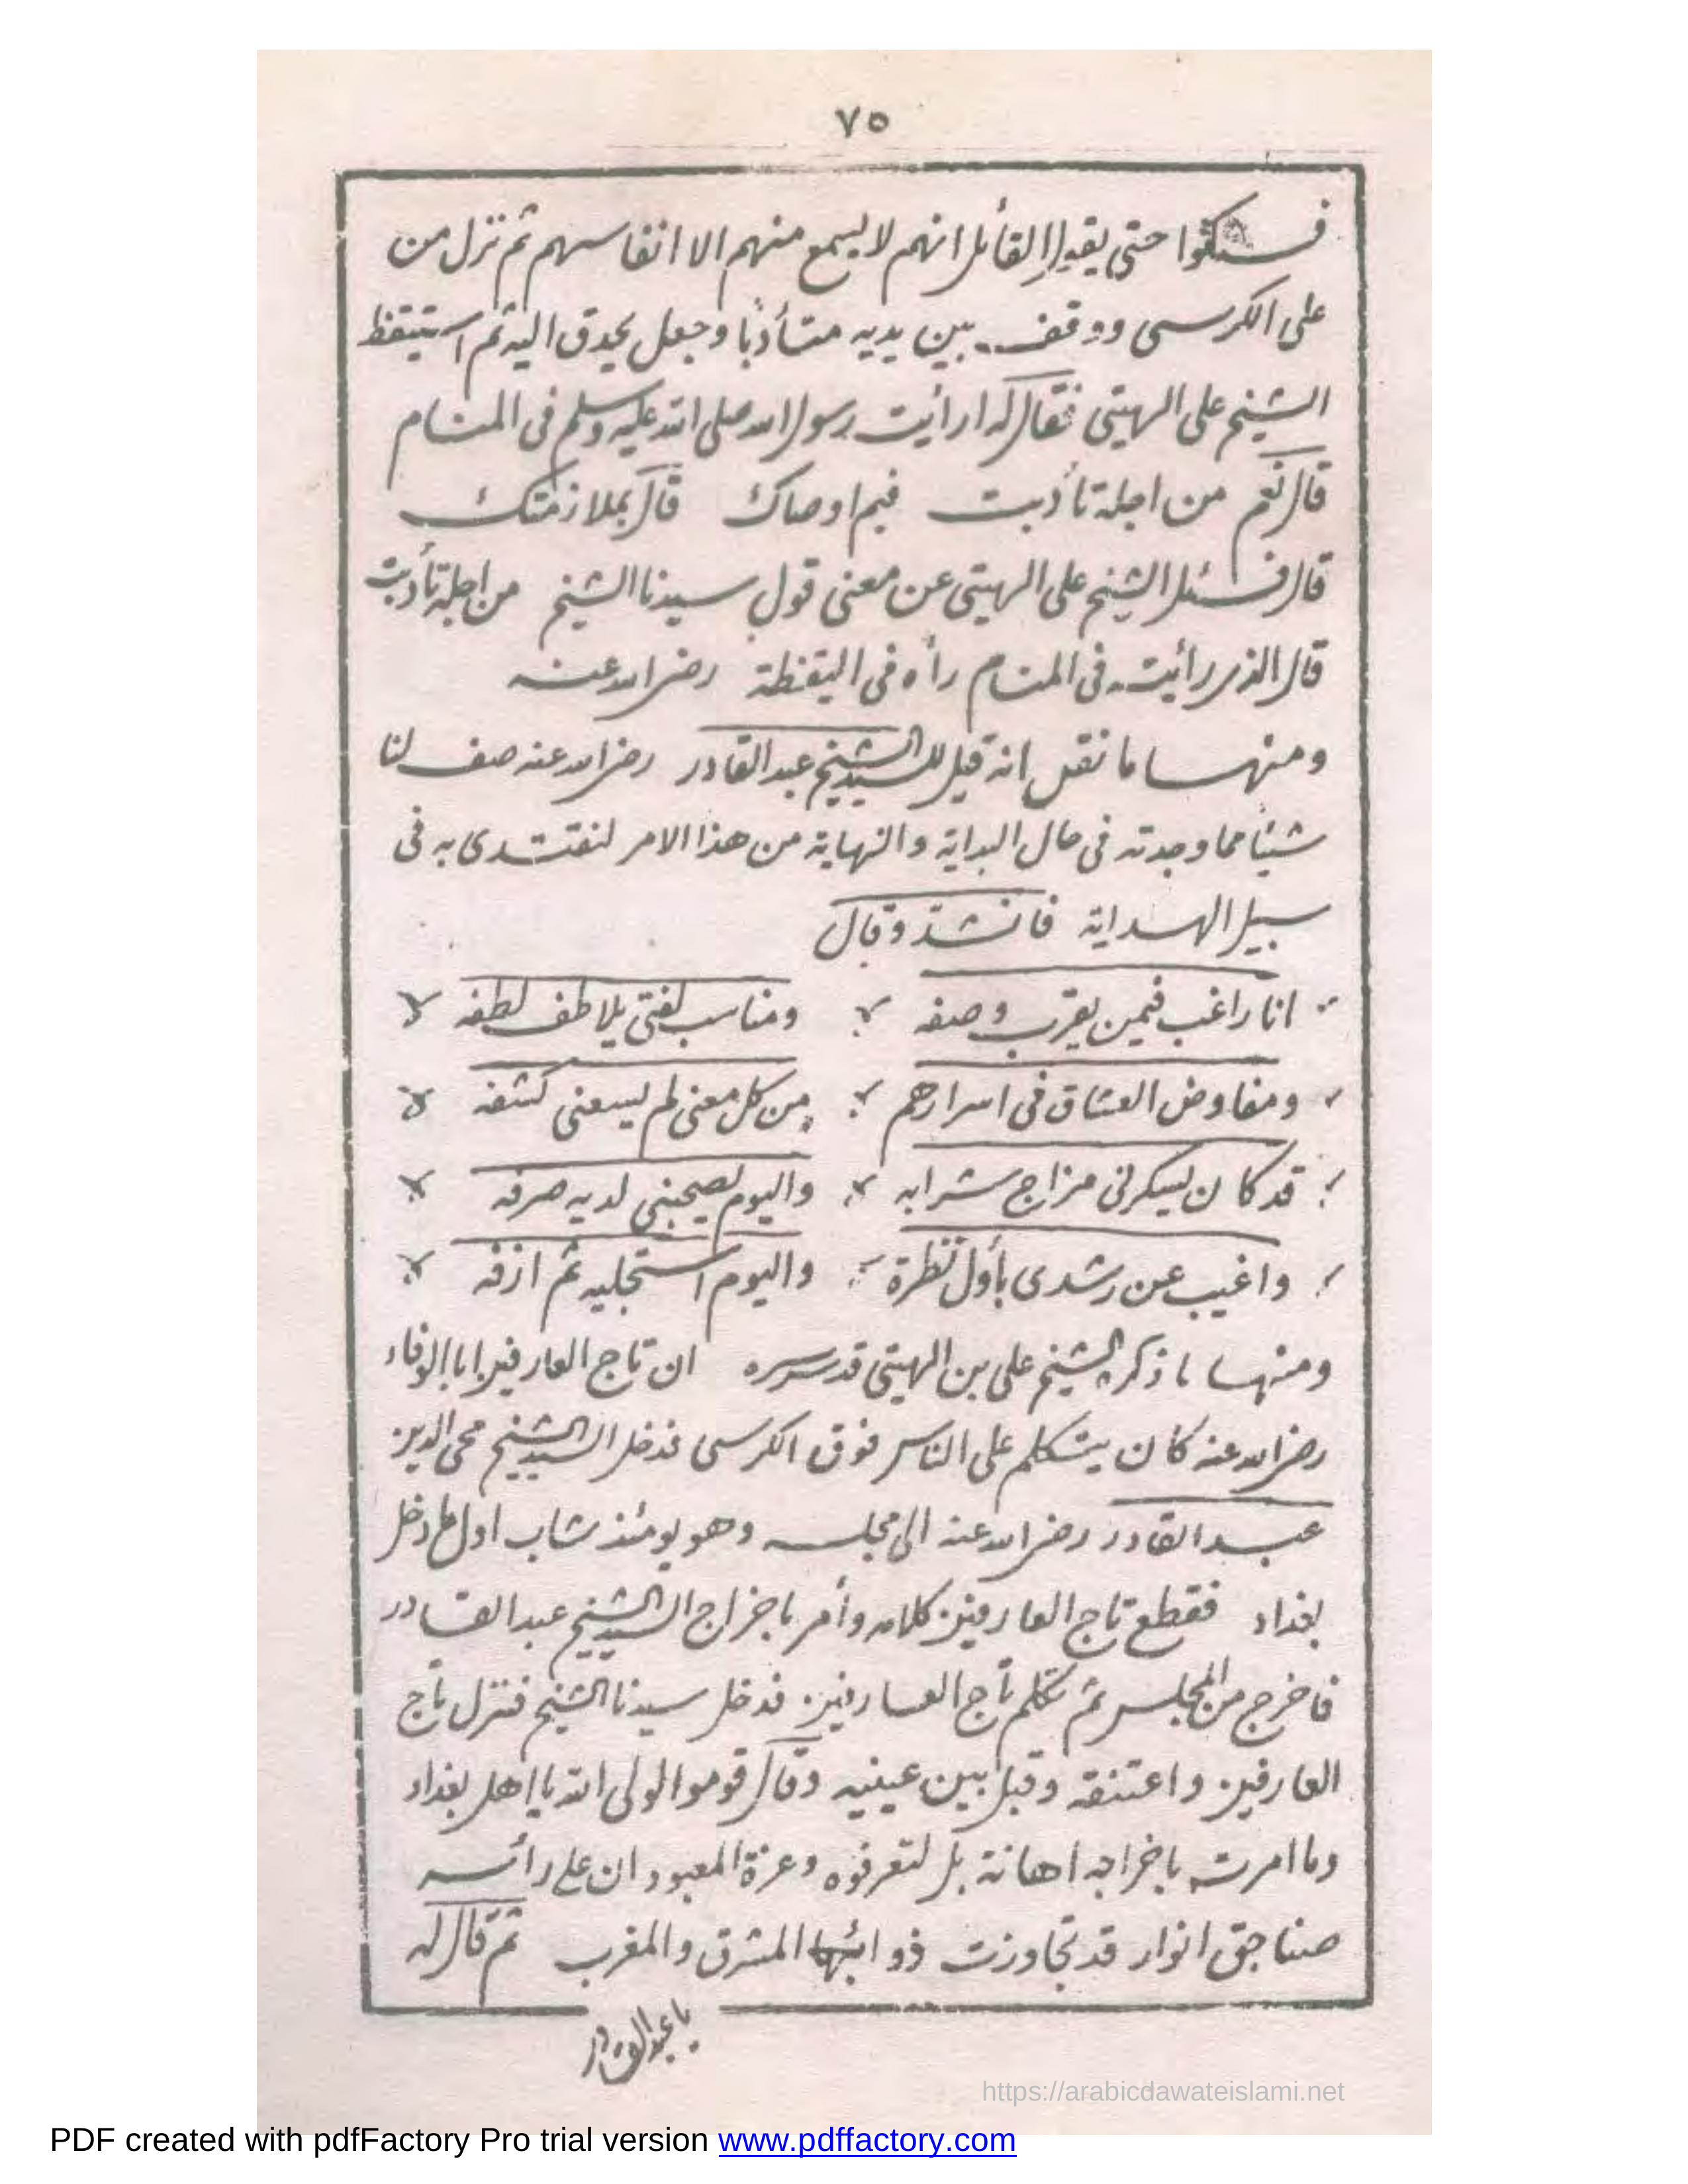 ٧٥
فسكتوا حتى يقول القائل انهم لا يسمع منهم الا انفاسهم ثم نزل من
على الكرسى ووقف بين يديه متأدبا وجعل يحدق اليه ثم استيقظ
الشيخ على الهيتى فقال له ارأيت رسول الله صلى الله عليه وسلم فى المنام
قال نعم من اجله تأدبت فبم اوصاك قال بملازمتك
قال فسئل الشيخ على الهيتى عن معنى قول سيدنا الشيخ من اجله تأدبت
قال الذى رأيته فى المنام رأه فى اليقظة رضى الله عنه
ومنها ما نقل انه قيل للسيد الشيخ عبد القادر رضى الله عنه صف لنا
شيئا مما وجدته فى حال البداية والنهاية من هذا الامر لنقتدى به فى
سبيل الهداية فانشد وقال
انا راغب فيمن يقرب وصفه ومناسب لفتى يلاطف لطفه
ومفاوض العشاق فى اسرارهم من كل معنى لم يسعنى كشفه
قد كان يسكرنى مزاج شرابه واليوم يصحبنى لديه صرفه
واغيب عن رشدى بأول نظرة واليوم استجليه ثم ازفه
ومنها ما ذكر الشيخ على بن الهيتى قدس سره ان تاج العارفين ابا الوفاء
رضى الله عنه كان يتكلم على الناس فوق الكرسى فدخل السيد الشيخ محى الدين
عبد القادر رضى الله عنه الى مجلسه وهو يومئذ شاب اول ما دخل
بغداد فقطع تاج العارفين كلامه وأمر باخراج السيد الشيخ عبد القادر
فاخرج من المجلس ثم تكلم تاج العارفين فدخل سيدنا الشيخ فنزل تاج
العارفين واعتنقه وقبل بين عينيه وقال قوموا لولى الله يا اهل بغداد
وما امرت باخراجه اهانة بل لتعرفوه وعزة المعبود ان على رأسه
صناجق انوار قد تجاوزت ذوائبها المشرق والمغرب ثم قال له
يا عبد القادر
https://arabicdawateislami.net
PDF created with pdfFactory Pro trial version www.pdffactory.com